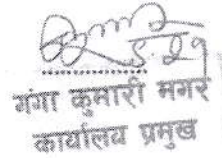 गंगा कुमारी मगर
कार्यालय प्रमुख